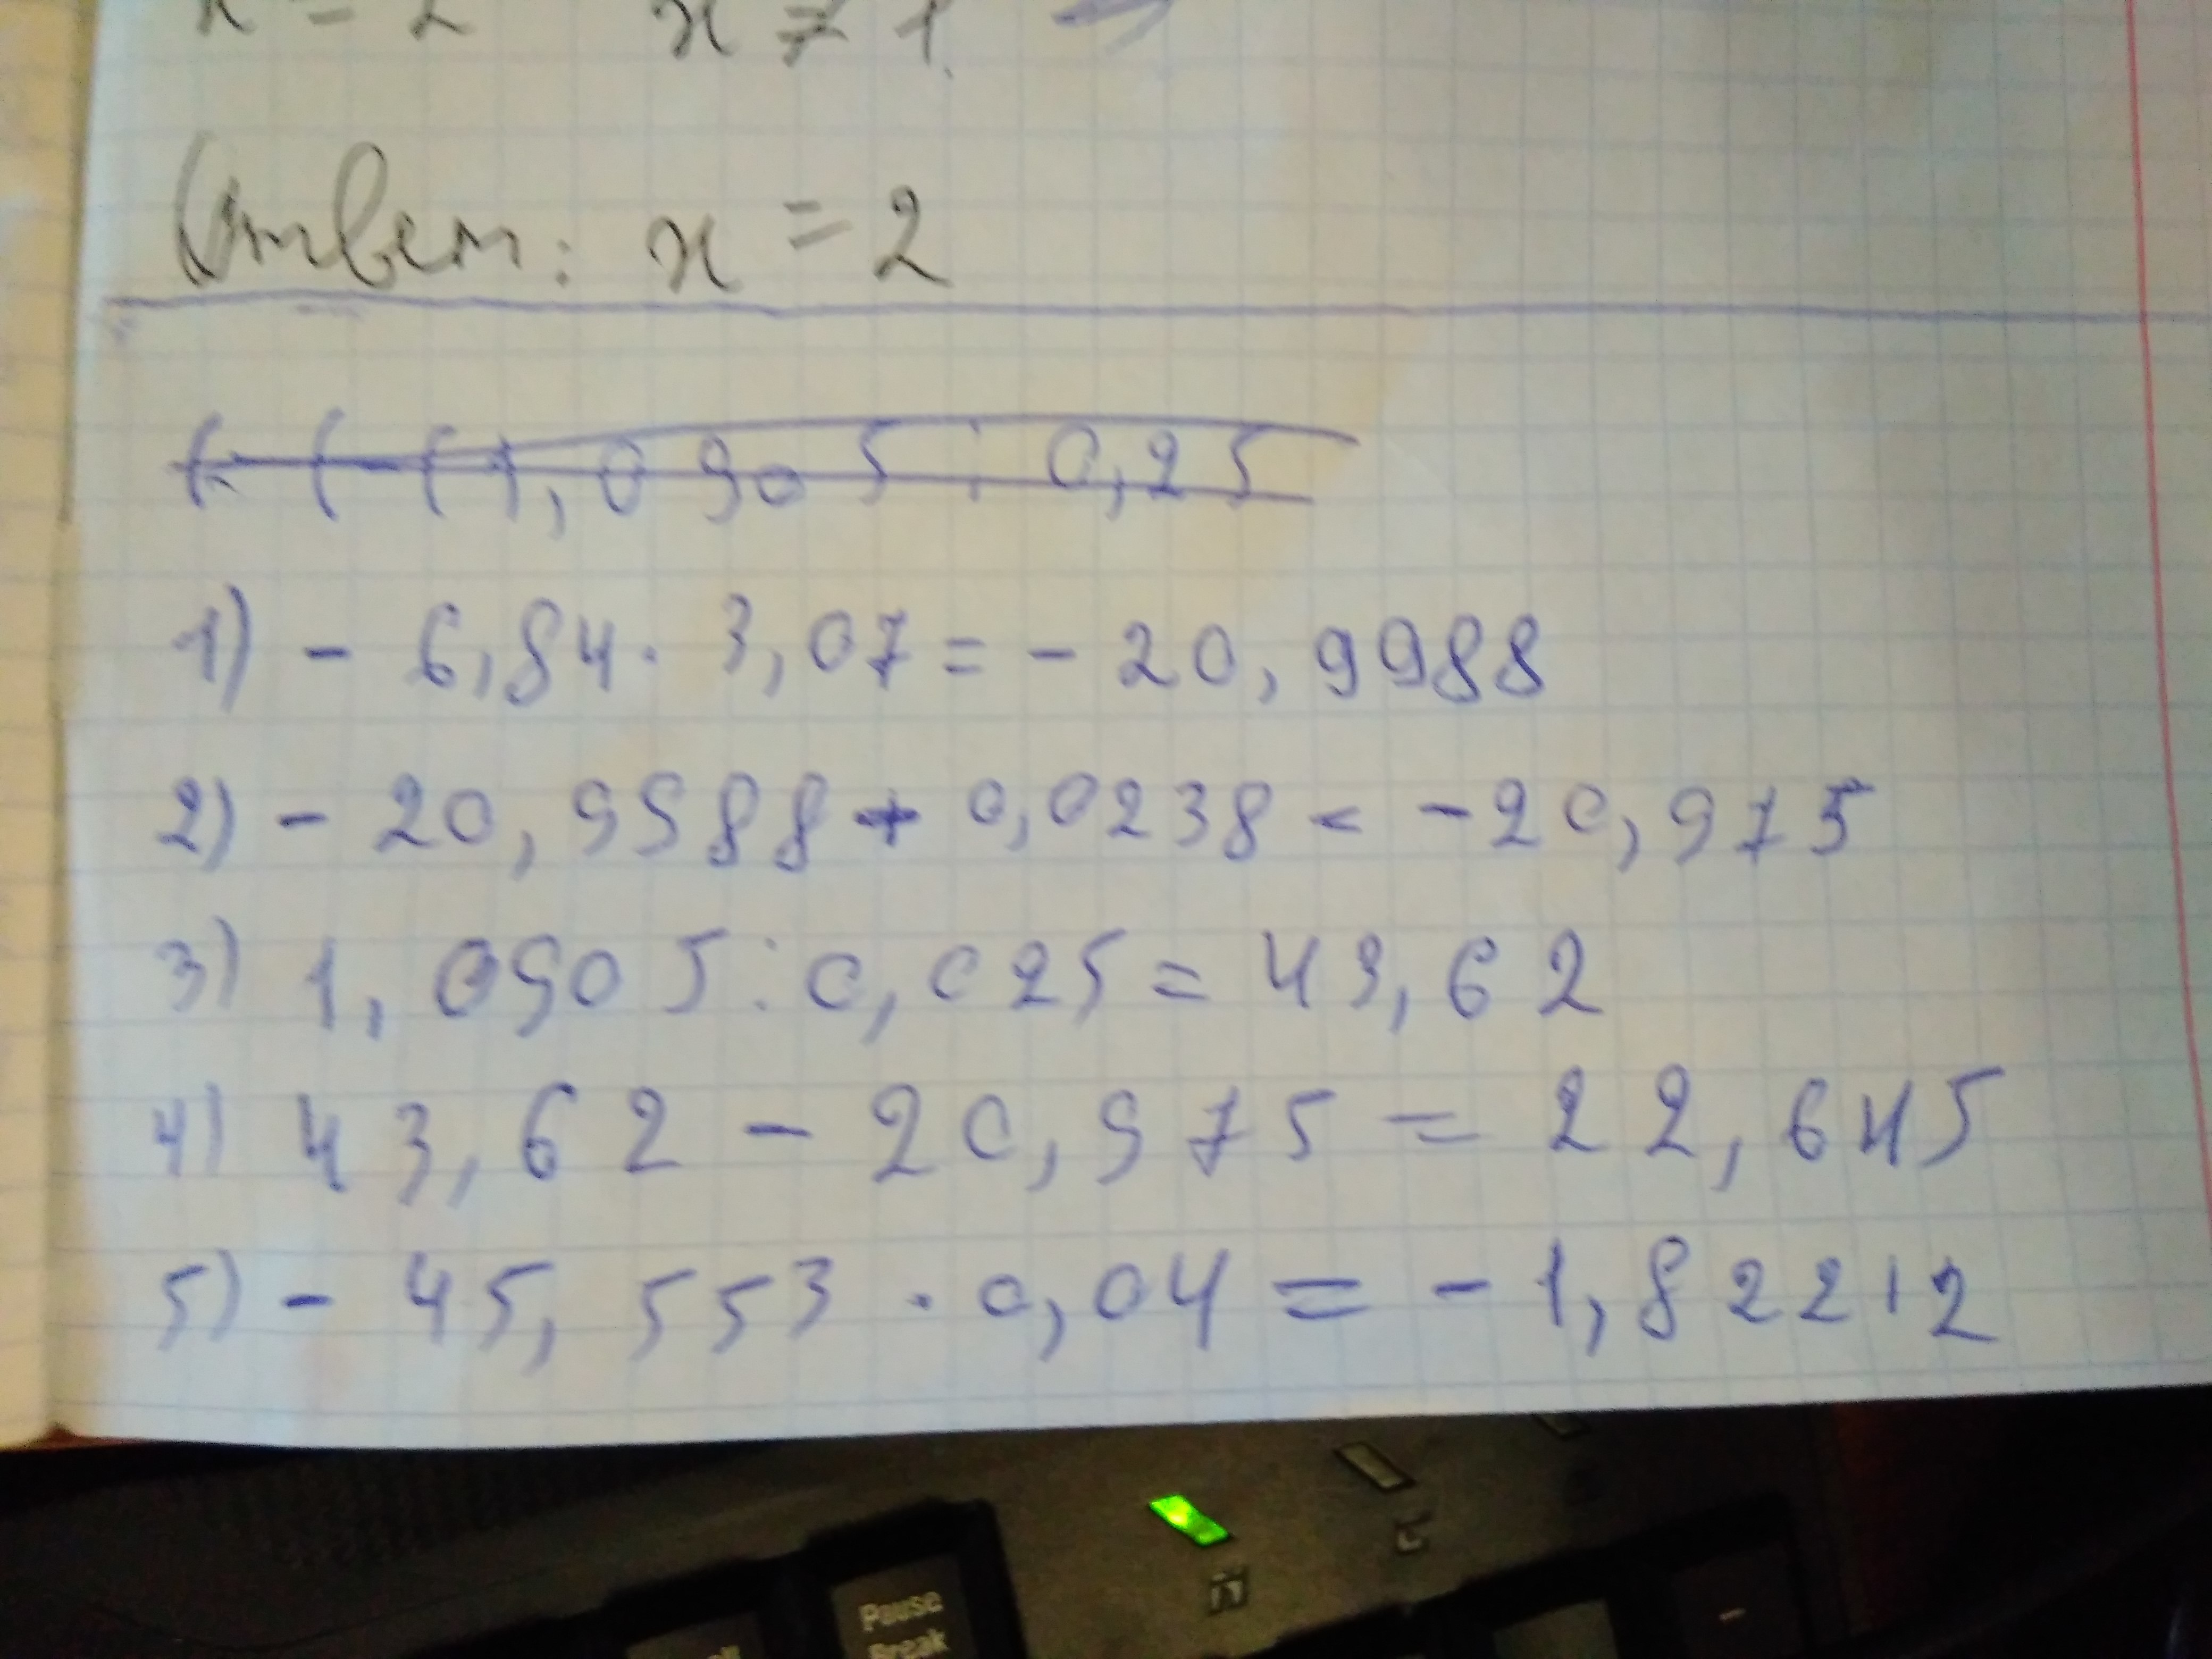 x = 2 x ≠ 1
Ответ: x = 2
1,0905 : 0,25
1) - 6,84 · 3,07 = - 20,9988
2) - 20,9988 + 0,0238 = - 20,975
3) 1,0905 : 0,025 = 43,62
4) 43,62 - 20,975 = 22,645
5) - 45,553 · 0,04 = - 1,82212
Pause
Break
-